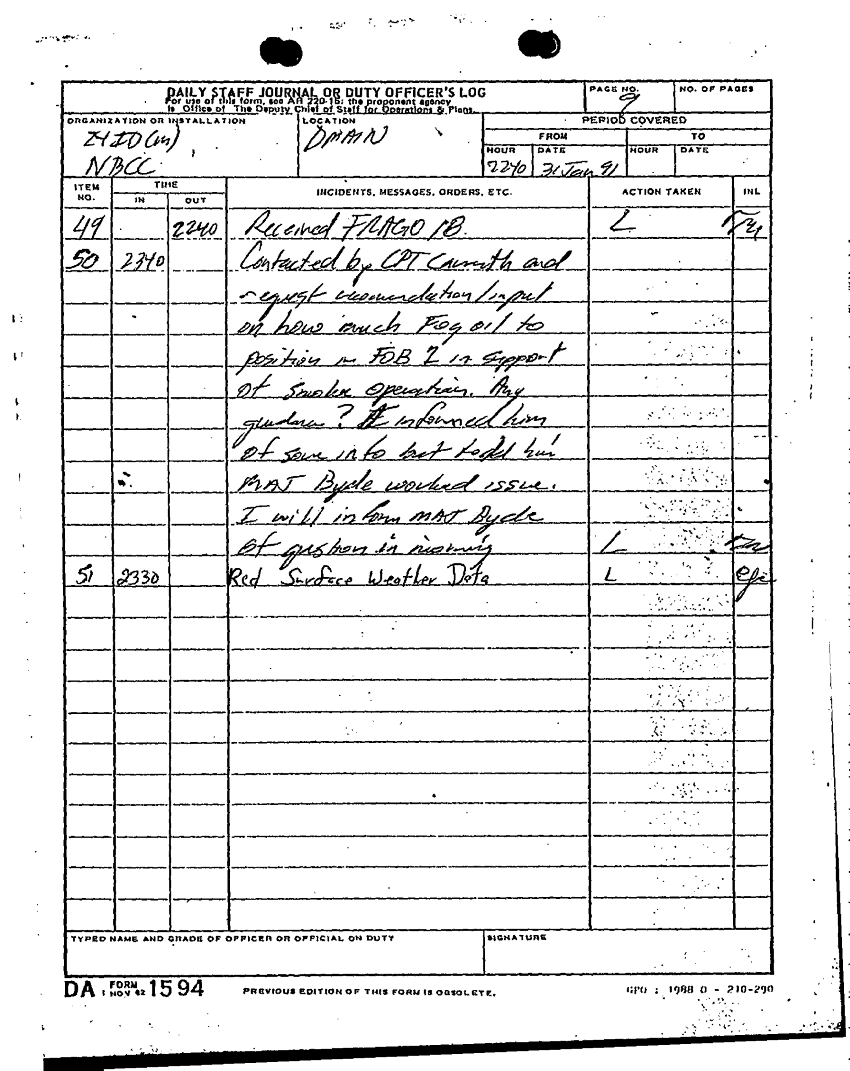 DAILY STAFF JOURNAL OR DUTY OFFICER'S LOG
For use of this form, see AR 220-15; the proponent agency
is Office of The Deputy Chief of Staff for Operations & Plans.
PAGE NO.
9
NO. OF PAGES
ORGANIZATION OR INSTALLATION
24 ID (M)
NBCC
LOCATION
DMAIN
PERIOD COVERED
FROM
TO
HOUR
DATE
HOUR
DATE
2240
31 Jan 91
ITEM NO.
TIME
IN
OUT
INCIDENTS, MESSAGES, ORDERS, ETC.
ACTION TAKEN
INL
49 2240 Received FRAGO 18. L
50 2340 Contacted by CPT and
request recomendation/input
on how much Fog oil to
position in FOB 2 in support
of smoke operation. Any
guidance? I informed him
of some info but told him
MAJ Byde worked issue.
I will inform MAJ Byde
of question in morning L
51 2330 Red Surface Weather Data L
TYPED NAME AND GRADE OF OFFICER OR OFFICIAL ON DUTY
SIGNATURE
DA FORM 1 NOV 62 1594
PREVIOUS EDITION OF THIS FORM IS OBSOLETE.
GPO : 1988 O - 210-290